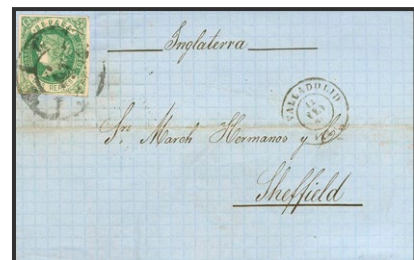 Inglaterra
VALLADOLID
Sres March Hermanos y Ca
Sheffield